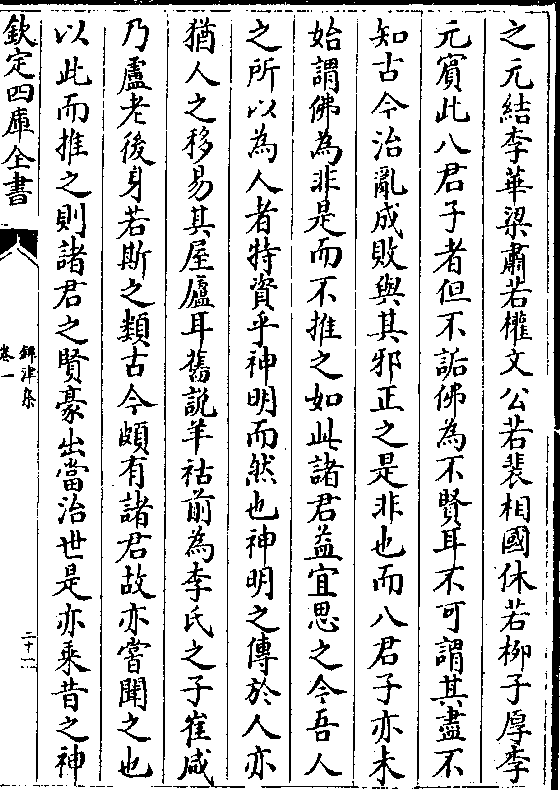 之元結李華梁肅若權文公若裴相國休若柳子厚李
元賓此八君子者但不詬佛為不賢耳不可謂其盡不
知古今治亂成敗與其邪正之是非也而八君子亦未
始謂佛為非是而不推之如此諸君益宜思之今吾人
之所以為人者特資乎神明而然也神明之傳於人亦
猶人之移易其屋廬耳舊說羊祜前為李氏之子崔咸
乃盧老後身若斯之類古今頗有諸君故亦嘗聞之也
以此而推之則諸君之賢豪出當治世是亦乘昔之神
欽定四庫全書
鐔津集
卷一
二十一